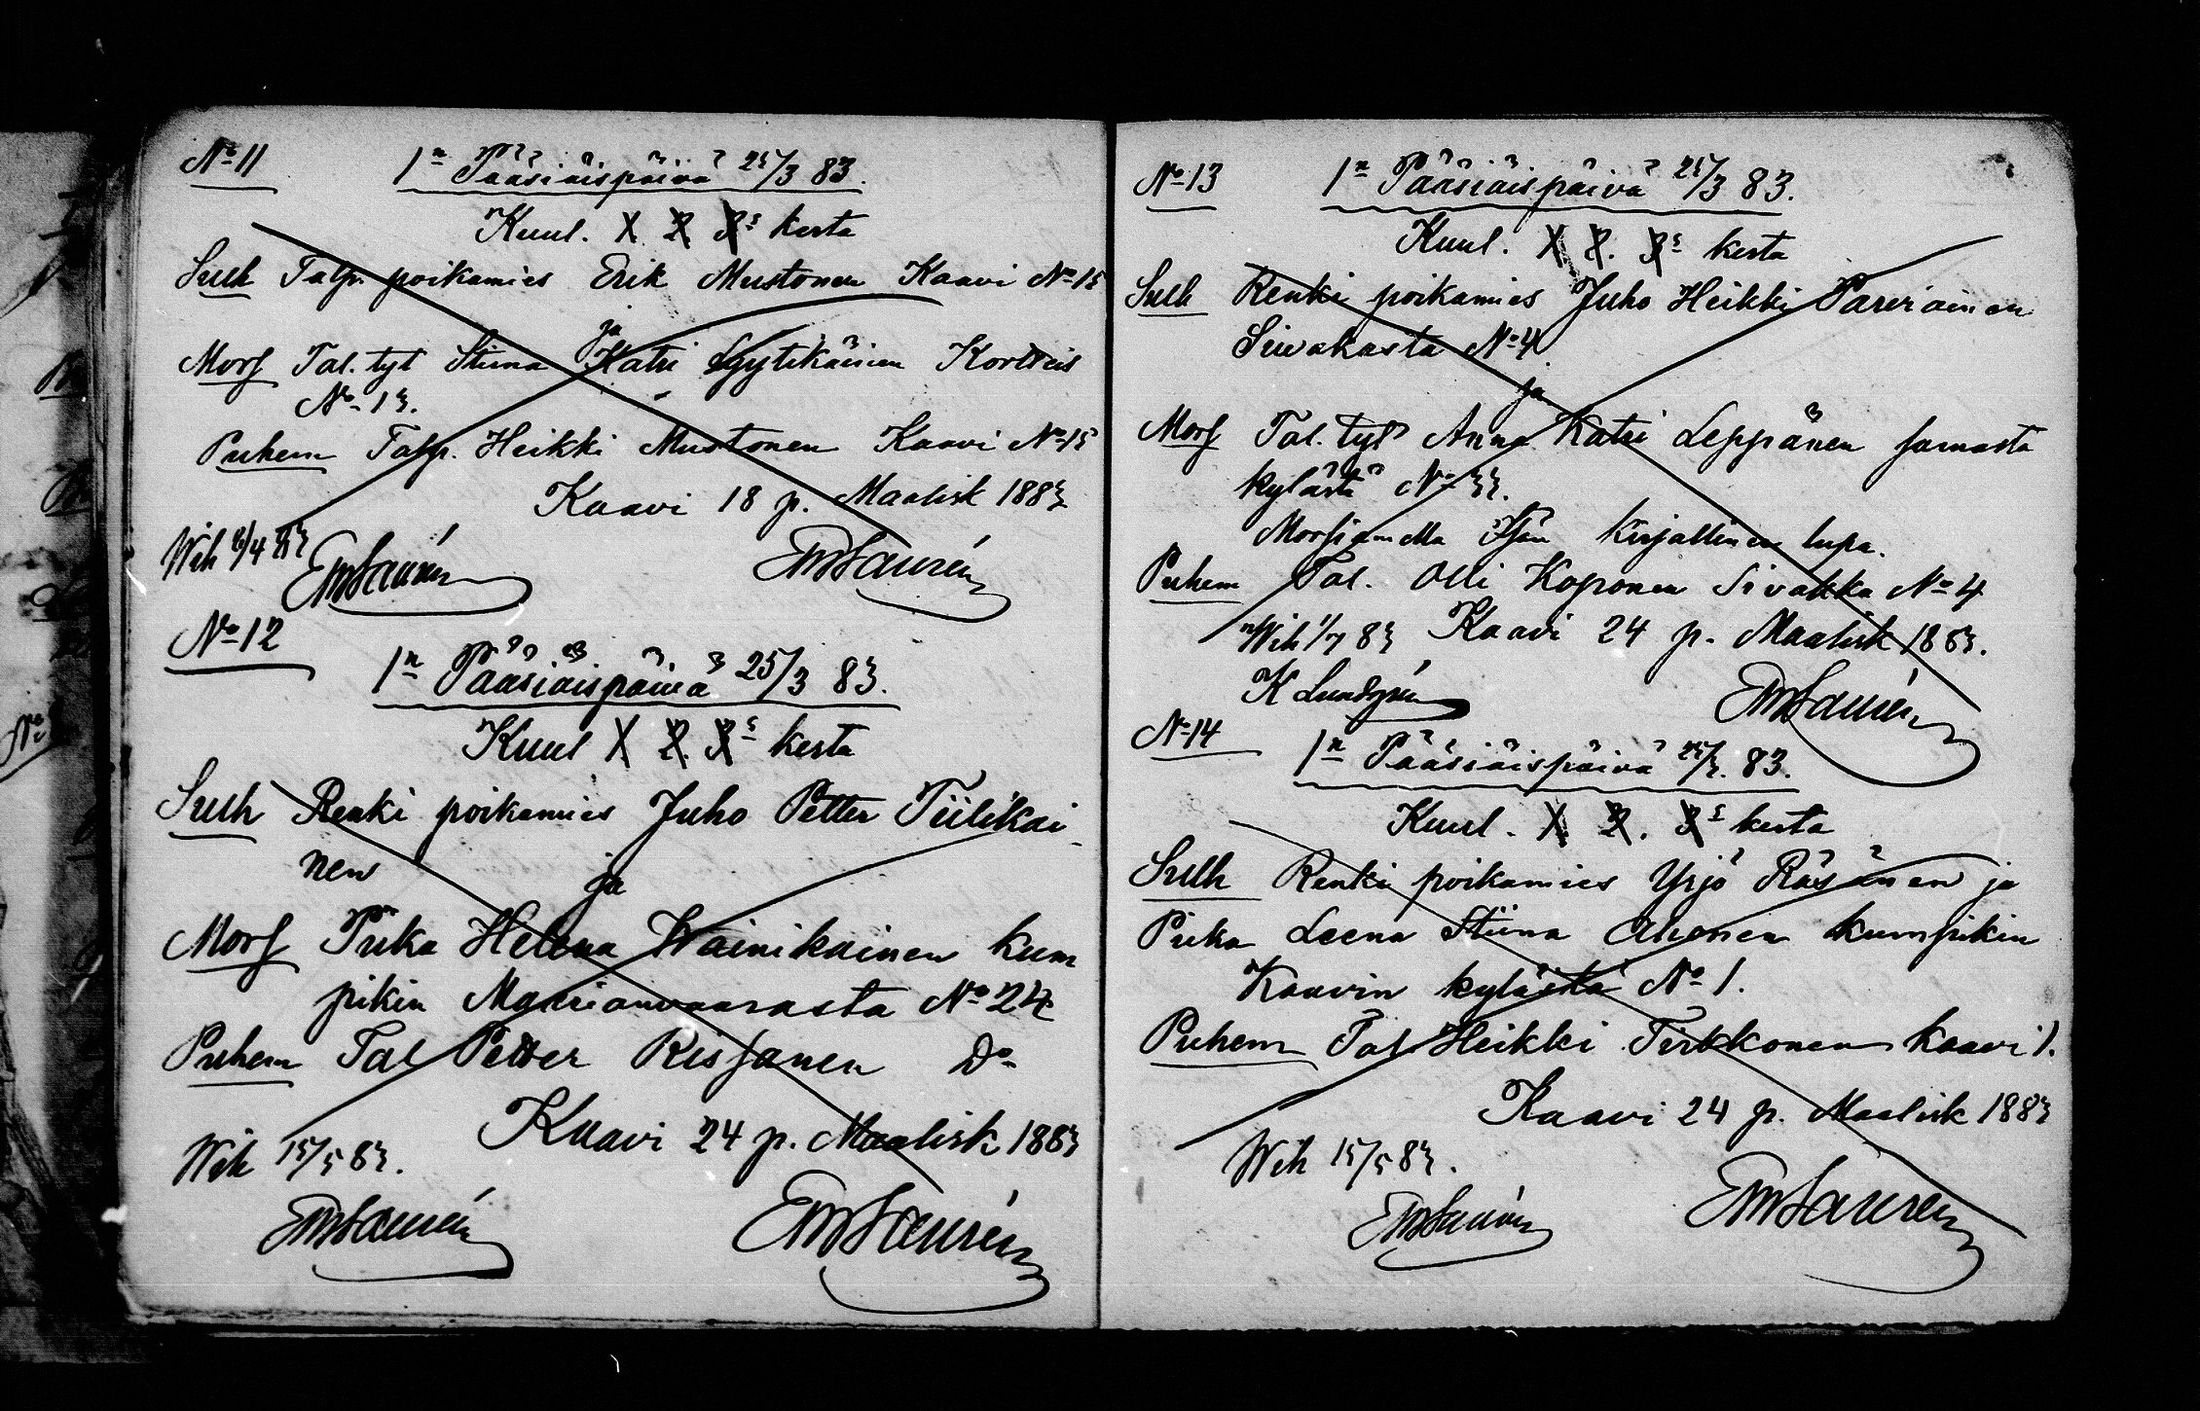 No 11
1n Pääsiäispäivä 25/3 83.
Kuul. 1 2 3s kerta
Sulh Talp. poikamies Erik Mustonen Kaavi No 15
ja
Mors Tal. tyt Stiina Katri Lyytikäinen Kortteis
No 13.
Puhem Talp. Heikki Mustonen Kaavi No 15
Kaavi 18 p. Maalisk 1883
Wih /4 83
EmSaurén
EmSaurén
No 12
1n Pääsiäispäivä 25/3 83.
Kuul 1 2. 3s kerta
Sulh Renki poikamies Juho Petter Tiilikai
nen
ja
Mors Piika Helena Wainikainen kum
pikin Maarianvaarasta No 24
Puhem Tal Petter Rissanen Do
Kaavi 24 p. Maalisk 1883
Wih 15/5 83.
EmSaurén
EmSaurén
No 13
1n Pääsiäispäivä 25/3 83.
Kuul. 1 2. 3s kerta
Sulh Renki poikamies Juho Heikki Parviainen
Siivakasta No 4
ja
Mors Tal. tyt Anna Katri Leppänen samasta
kylästä No 33.
Morsiamella Isän kirjallinen lupa.
Puhem Tal. Olli Koponen Sivakka No 4
Wih 1/7 83 Kaavi 24 p. Maalisk 1883.
K Lundgrén
EmSaurén
No 14
1n Pääsiäispäivä 25/3. 83.
Kuul. 1 2. 3s kerta
Sulh Renki poikamies Yrjö Räsänen ja
Piika Leena Stiina Ahonen kumpikin
Kaavin kylästä No 1.
Puhem Tal. Heikki Tirkkonen Kaavi 1.
Kaavi 24 p. Maalisk 1883
Wih 15/5 83.
EmSaurén
EmSaurén